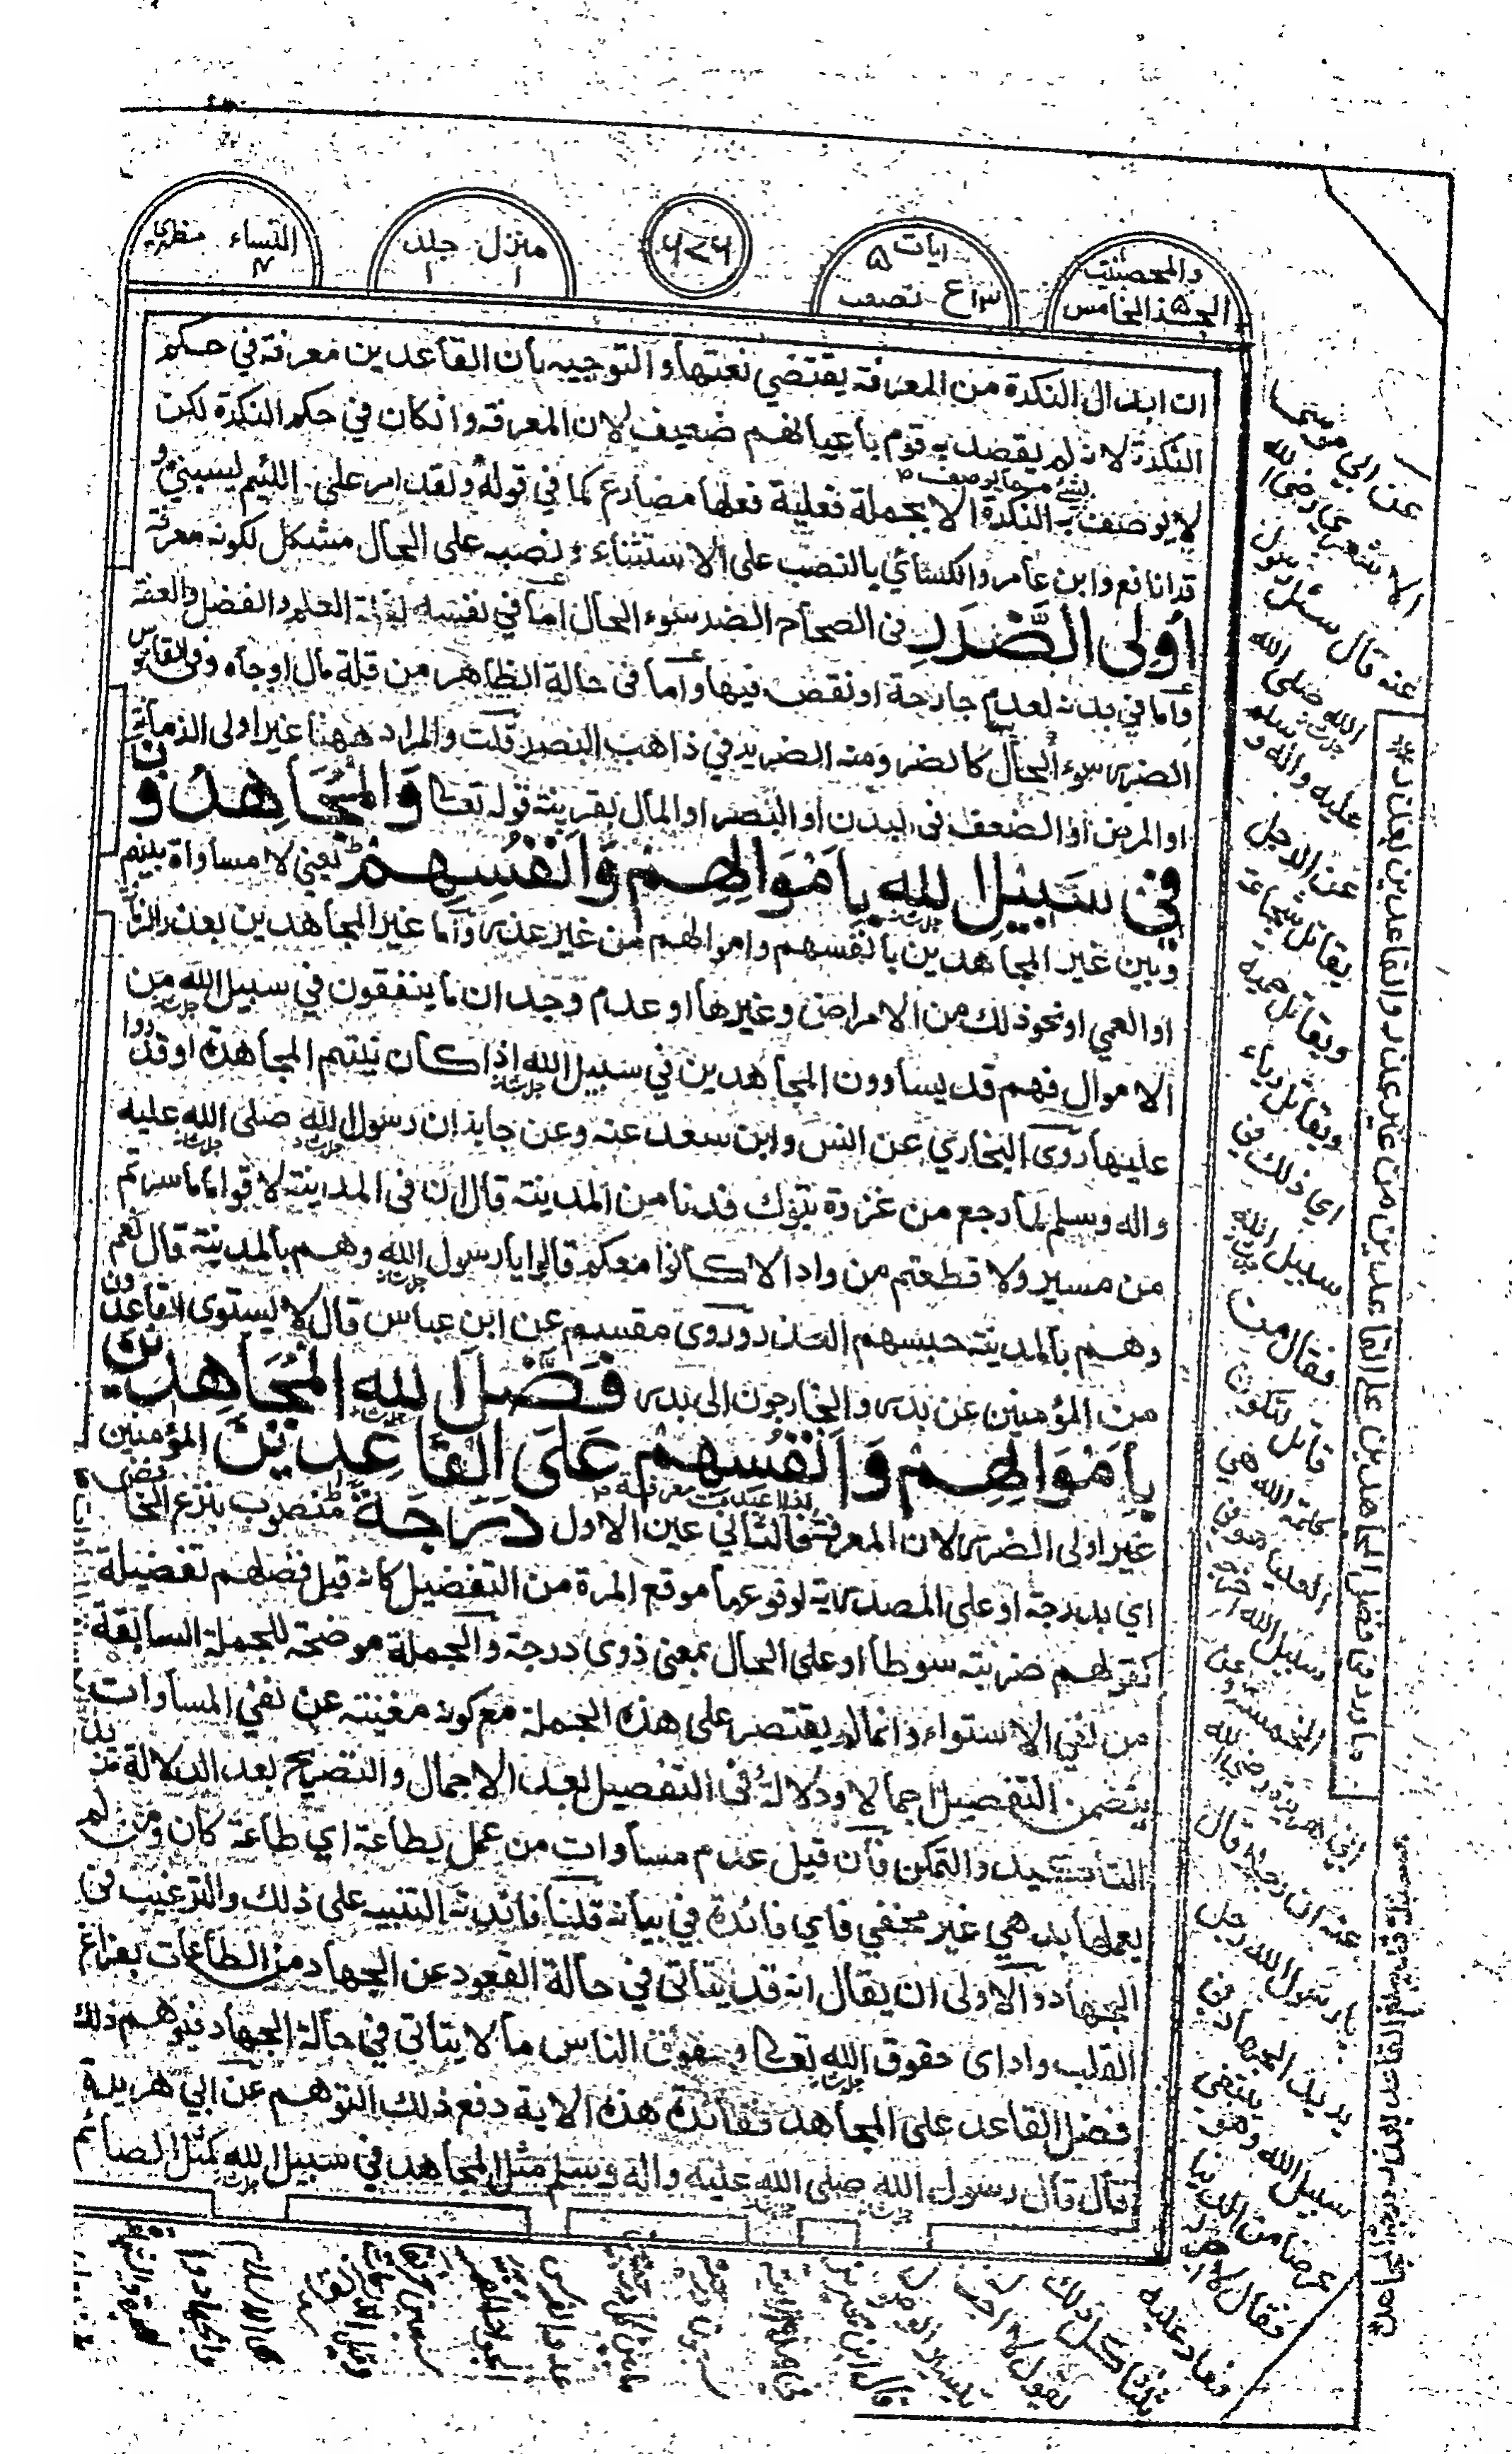 والمحصنت
الجزء الخامس
ايات ۵
ع ۱۳ نصف
۶۷۶
منزل ۱ جلد ۱
النساء ۴ مظهری
ان ابدال النكرة من المعرفة يقتضي نعتها والتوجيه بان القاعدين معرفة في حكم
النكرة لانه لم يقصد به قوم باعيانهم ضعيف لان المعرفة وان كان في حكم النكرة لكن
لا يوصف بشئ مما يوصف به النكرة الا بجملة فعلية فعلها مضارع كما في قوله ولقد امر على اللئيم يسبني و
قرا نافع وابن عامر والكسائي بالنصب على الاستثناء و نصبه على الحال مشكل لكونه معرفة
أُولِى الضَّرَرِ في الصحاح الضر سوء الحال اما في نفسه لقلة العلم والفضل والعفة
واما في بدنه لعدم جارحة او نقص فيها واما في حالة الظاهر من قلة مال او جاه وفى القاموس
الضرر سوء الحال كالضر ومنه الضرير في ذاهب البصر قلت والمراد ههنا غير اولى الزمانة
او المرض او الضعف فى البدن او البصر او المال بقرينة قوله تعالى وَالْمُجَاهِدُونَ
فِي سَبِيْلِ اللهِ بِاَمْوَالِهِمْ وَاَنْفُسِهِمْ يعني لا مساواة بينهم
وبين غير المجاهدين بانفسهم واموالهم من غير عذر واما غير المجاهدين بعذر الزمانة
او العمي او نحو ذلك من الامراض وغيرها او عدم وجدان ما ينفقون في سبيل الله من
الاموال فهم قد يساوون المجاهدين في سبيل الله اذا كان نيتهم المجاهدة او قدروا
عليها روى البخاري عن انس وابن سعد عنه وعن جابر ان رسول الله صلى الله عليه
واله وسلم لما رجع من غزوة تبوك فدنا من المدينة قال ان فى المدينة لاقواما ما سرتم
من مسير ولا قطعتم من واد الا كانوا معكم قالوا يا رسول الله وهم بالمدينة قال نعم
وهم بالمدينة حبسهم العذر وروى مقسم عن ابن عباس قال لا يستوى القاعدون
من المؤمنين عن بدر والخارجون الى بدر فَضَّلَ اللهُ الْمُجَاهِدِيْنَ
بِاَمْوَالِهِمْ وَاَنْفُسِهِمْ عَلَى الْقَاعِدِيْنَ المؤمنين
غير اولى الضرر لان المعرفة اذا اعيدت معرفة فالثاني عين الاول دَرَجَةً منصوب بنزع الخافض
اي بدرجة او على المصدرية لوقوعها موقع المرة من التفضيل كانه قيل فضلهم تفضيلة
كقولهم ضربته سوطا او على الحال بمعنى ذوى درجة والجملة موضحة للجملة السابقة
من نفي الاستواء وانما لم يقتصر على هذه الجملة مع كونه مغنية عن نفي المساوات
يتضمن التفصيل اجمالا ودلالة في التفصيل بعد الاجمال والتصريح بعد الدلالة مزيد
التاكيد والتمكن فان قيل عدم مساوات من عمل بطاعة اي طاعة كان ومن لم
يعملها بديهي غير مخفي فاي فائدة في بيانه قلنا فائدته التنبيه على ذلك والترغيب في
الجهاد والاولى ان يقال انه قد يتاتى في حالة القعود عن الجهاد من الطاعات بفراغ
القلب واداى حقوق الله تعالى وحقوق الناس ما لا يتاتى في حالة الجهاد فيتوهم ذلك
فضل القاعد على المجاهد ففائدة هذه الاية دفع ذلك التوهم عن ابي هريرة
قال قال رسول الله صلى الله عليه واله وسلم مثل المجاهد في سبيل الله كمثل الصائم
عن ابي موسى
الاشعري رضي الله
عنه قال سئل رسول
الله صلى الله
عليه واله وسلم
عن الرجل
يقاتل شجاعة
ويقاتل حمية
ويقاتل رياء
اي ذلك في
سبيل الله
فقال من
قاتل لتكون
كلمة الله هي
العليا فهو في
سبيل الله اخرجه
الخمسة وعن
ابي هريرة رضي الله
عنه ان رجلا قال
يا رسول الله رجل
يريد الجهاد في
سبيل الله وهو يبتغي
عرضا من الدنيا
فقال لا اجر له
فعاد عليه
ثلثا كل ذلك
يقول لا اجر له
ما ورد في فضل المجاهدين على القاعدين من غير عذر والقاعدين بعذر